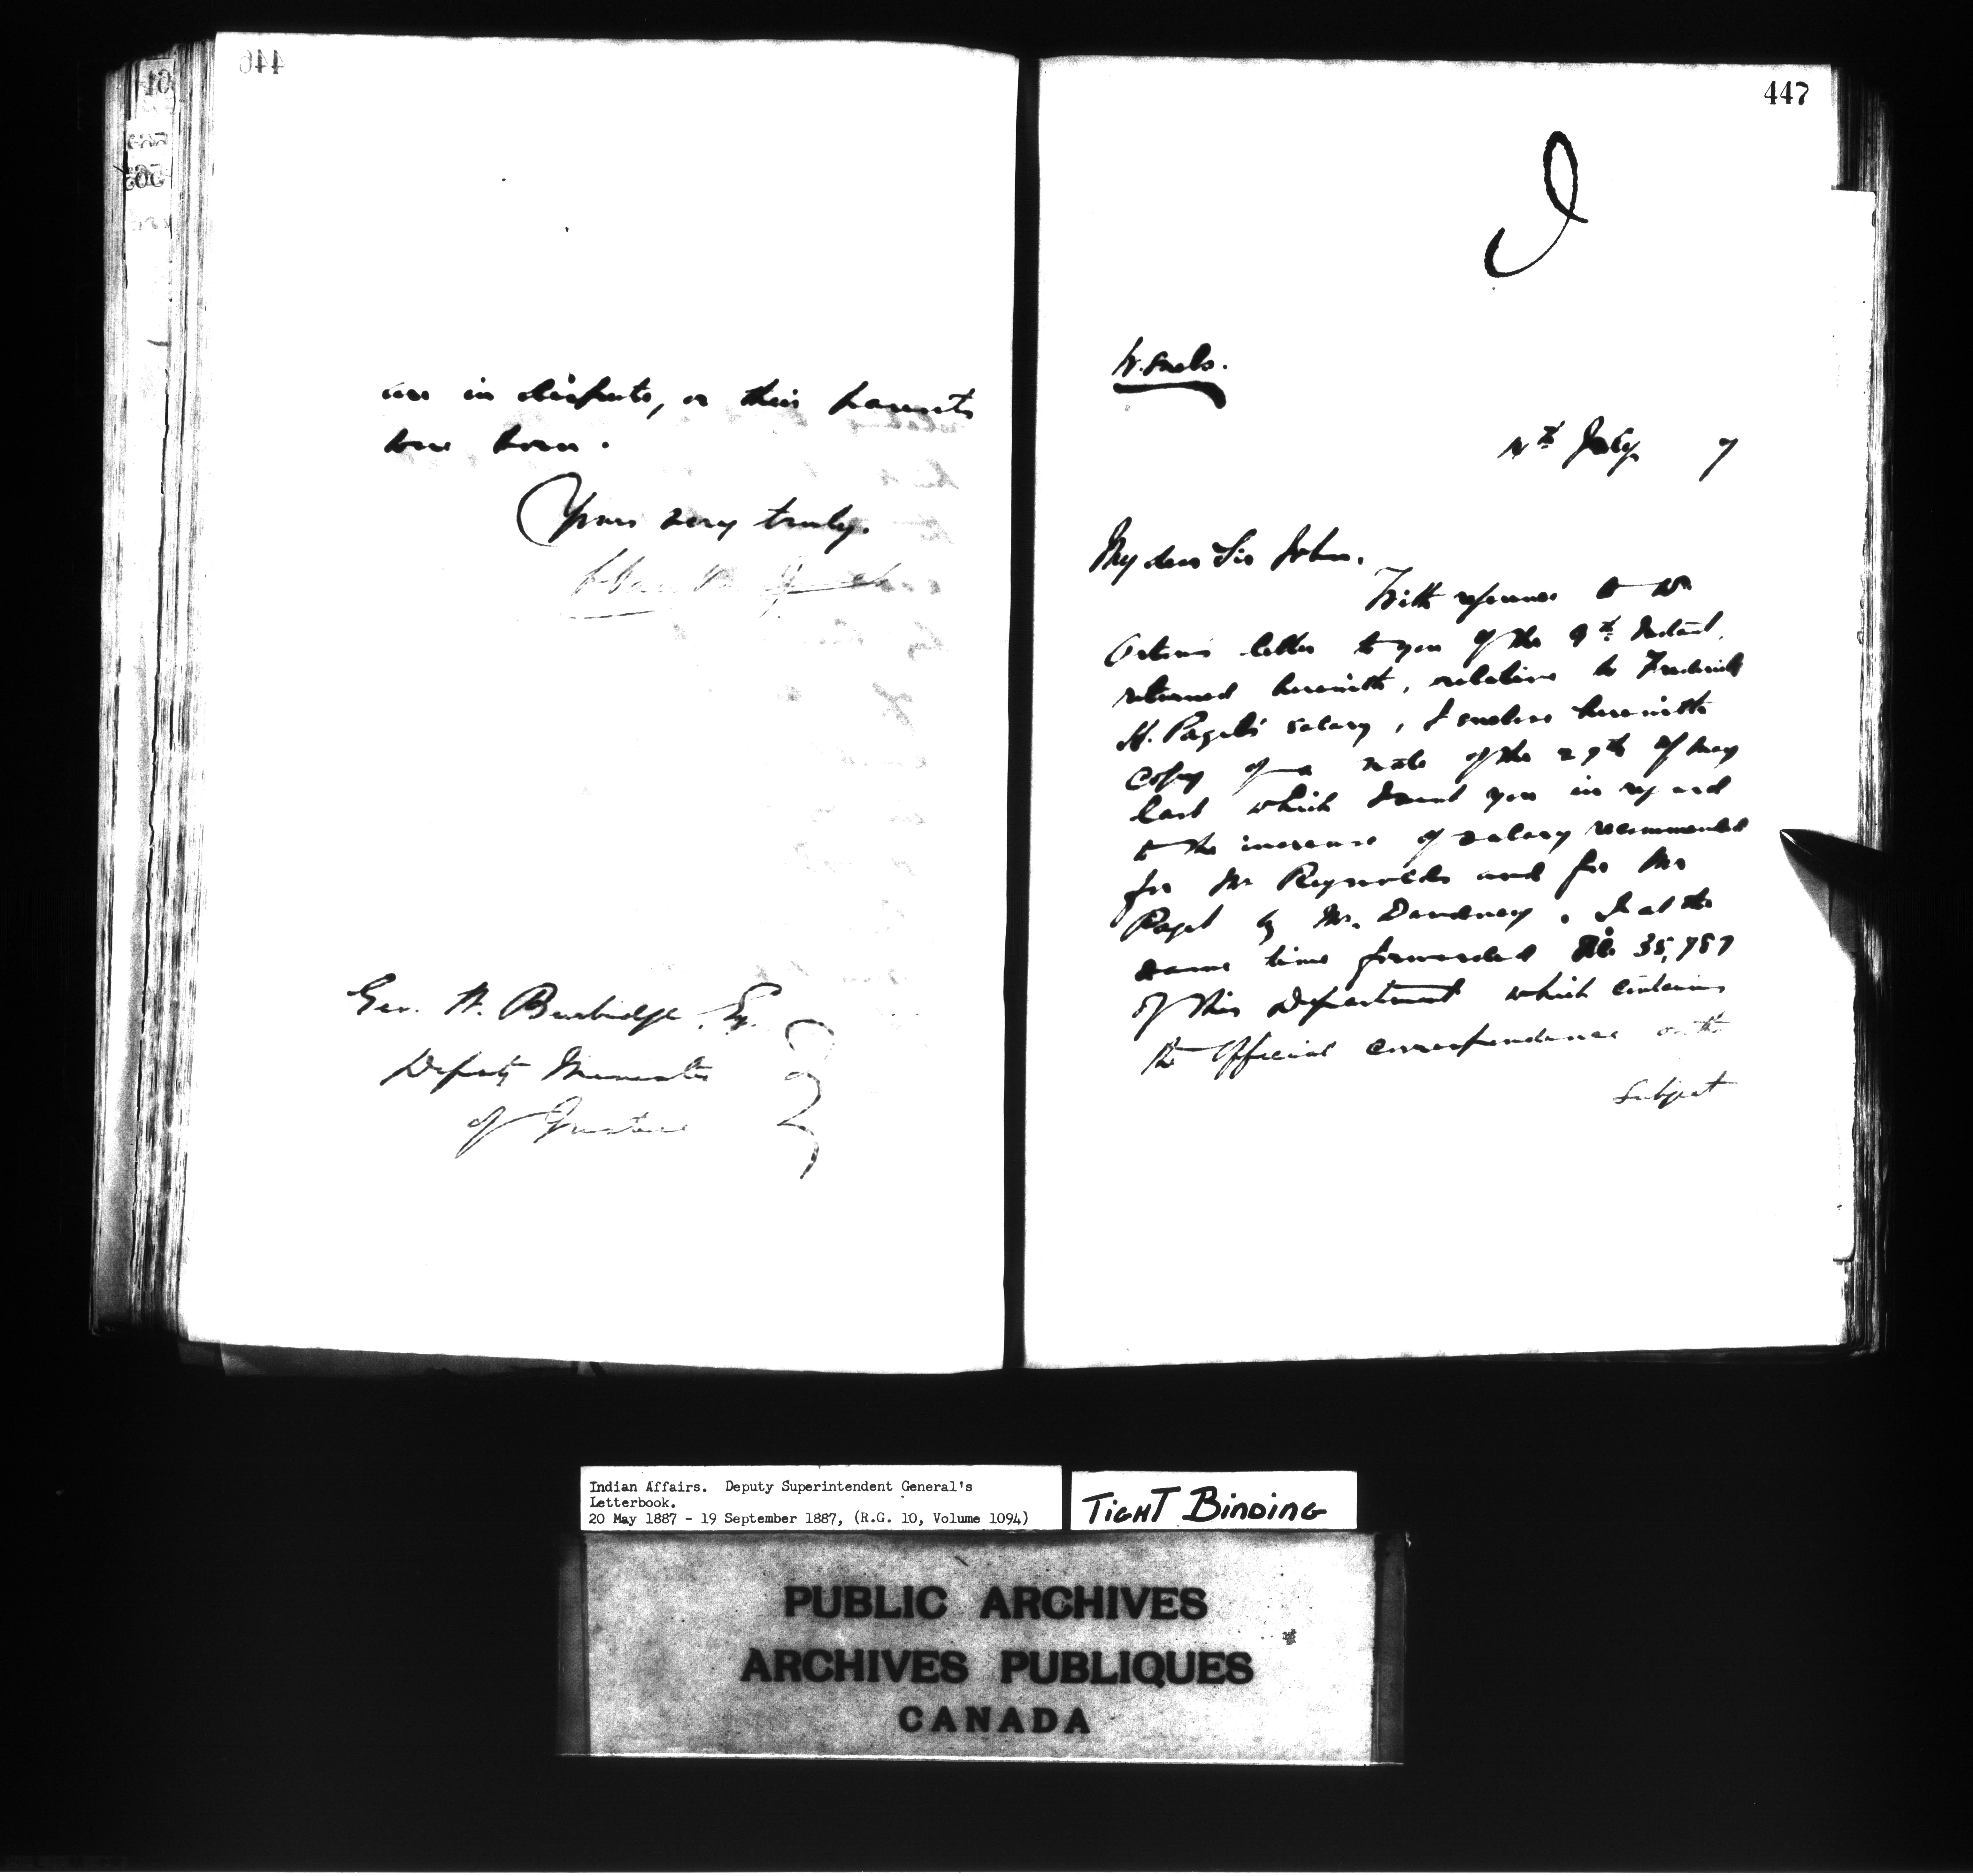 446
are in dispute, or their parents
were born.
Yours very truly.
Geo. W. Burbidge, Esq.
Deputy Minister
of Justice
447
W. encls.
July 7
My dear Sir John.
With reference to
letter to you of the 9th Instant,
returned herewith, relative to Frederick
H. Paget's salary, I enclose herewith
copy of a note of the 27th of May
last which I sent you in regard
to the increase of salary recommended
for Mr Reynolds and for Mr
Paget by Mr. Dewdney. I at the
same time forwarded No. 35,757
of this Department which contains
the Official correspondence on the
subject
Indian Affairs. Deputy Superintendent General's
Letterbook.
20 May 1887 - 19 September 1887, (R.G. 10, Volume 1094)
TIGHT BINDING
PUBLIC ARCHIVES
ARCHIVES PUBLIQUES
CANADA